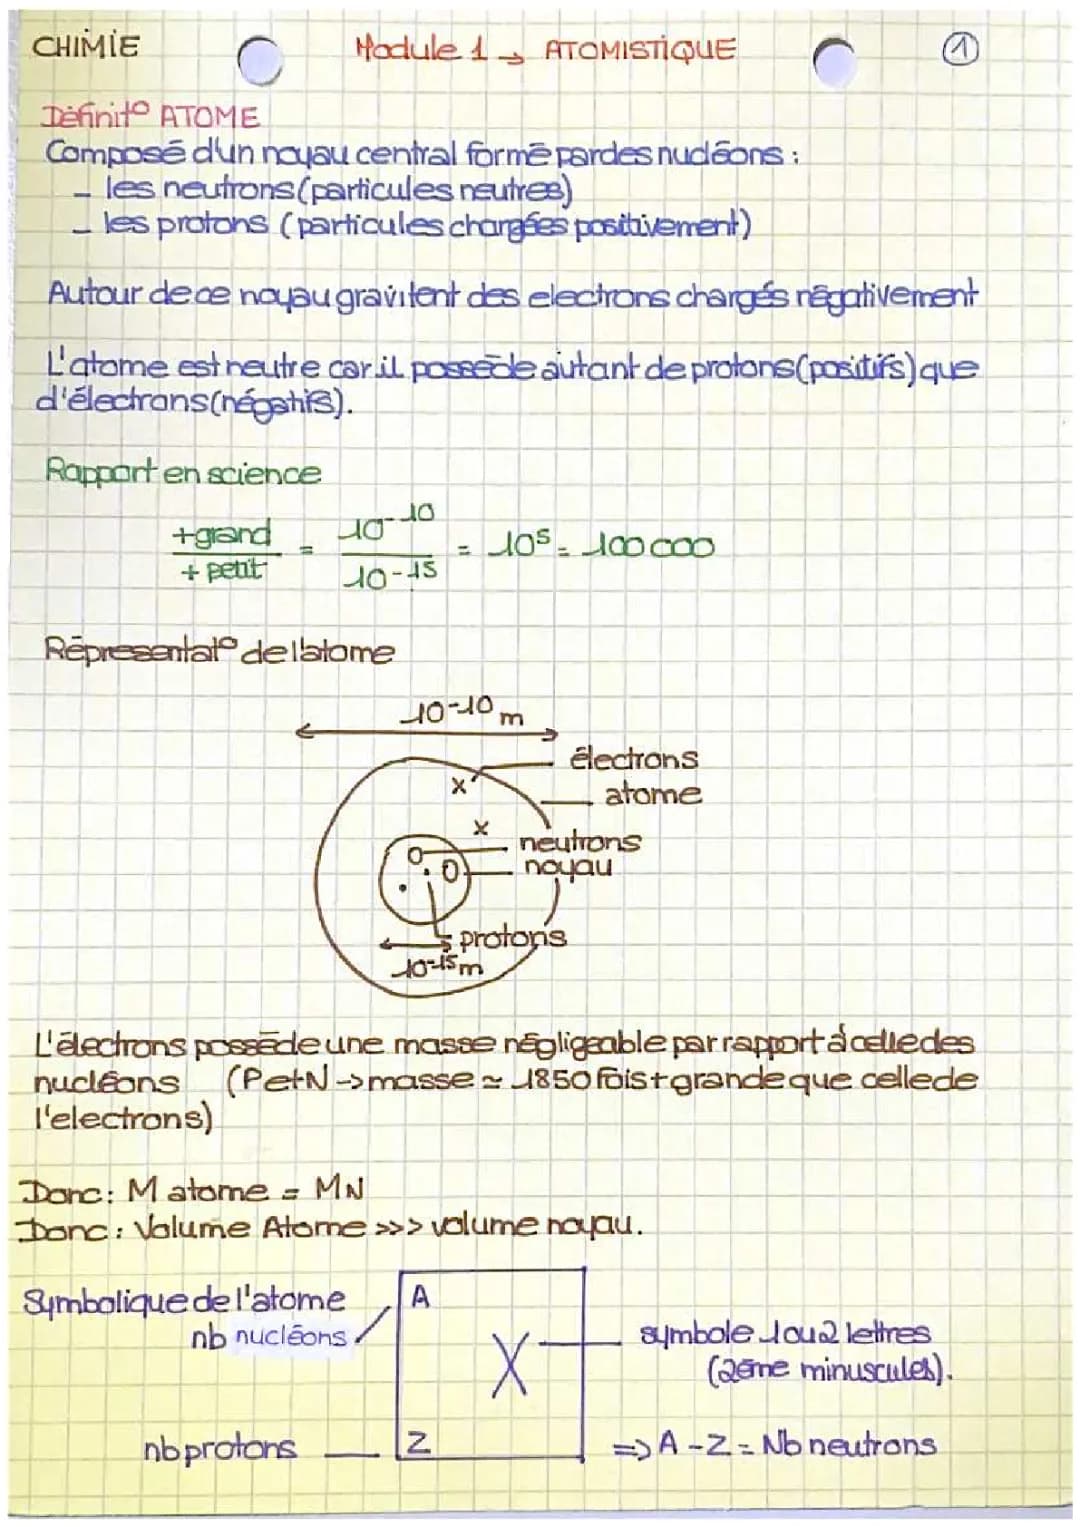 CHIMIE Module 1 → ATOMISTIQUE 1
Définit° ATOME
Composé d'un noyau central formé par des nucléons :
- les neutrons (particules neutres)
- les protons (particules chargées positivement)
Autour de ce noyau gravitent des electrons chargés négativement
L'atome est neutre car il possède autant de protons (positifs) que
d'électrons (négatifs).
Rapport en science
+grand / + petit = 10^-10 / 10^-15 = 10^5 = 100 000
Réprésentat° de l'atome
10^-10 m
électrons
atome
neutrons
noyau
protons
10^-15 m
L'électrons possède une masse négligeable par rapport à celle des
nucléons (P et N → masse ≃ 1850 fois + grande que celle de
l'electrons)
Donc : M atome = MN
Donc : Volume Atome >>> volume noyau.
Symbolique de l'atome A
nb nucléons X symbole 1 ou 2 lettres
(2ème minuscules).
nb protons Z => A - Z = Nb neutrons